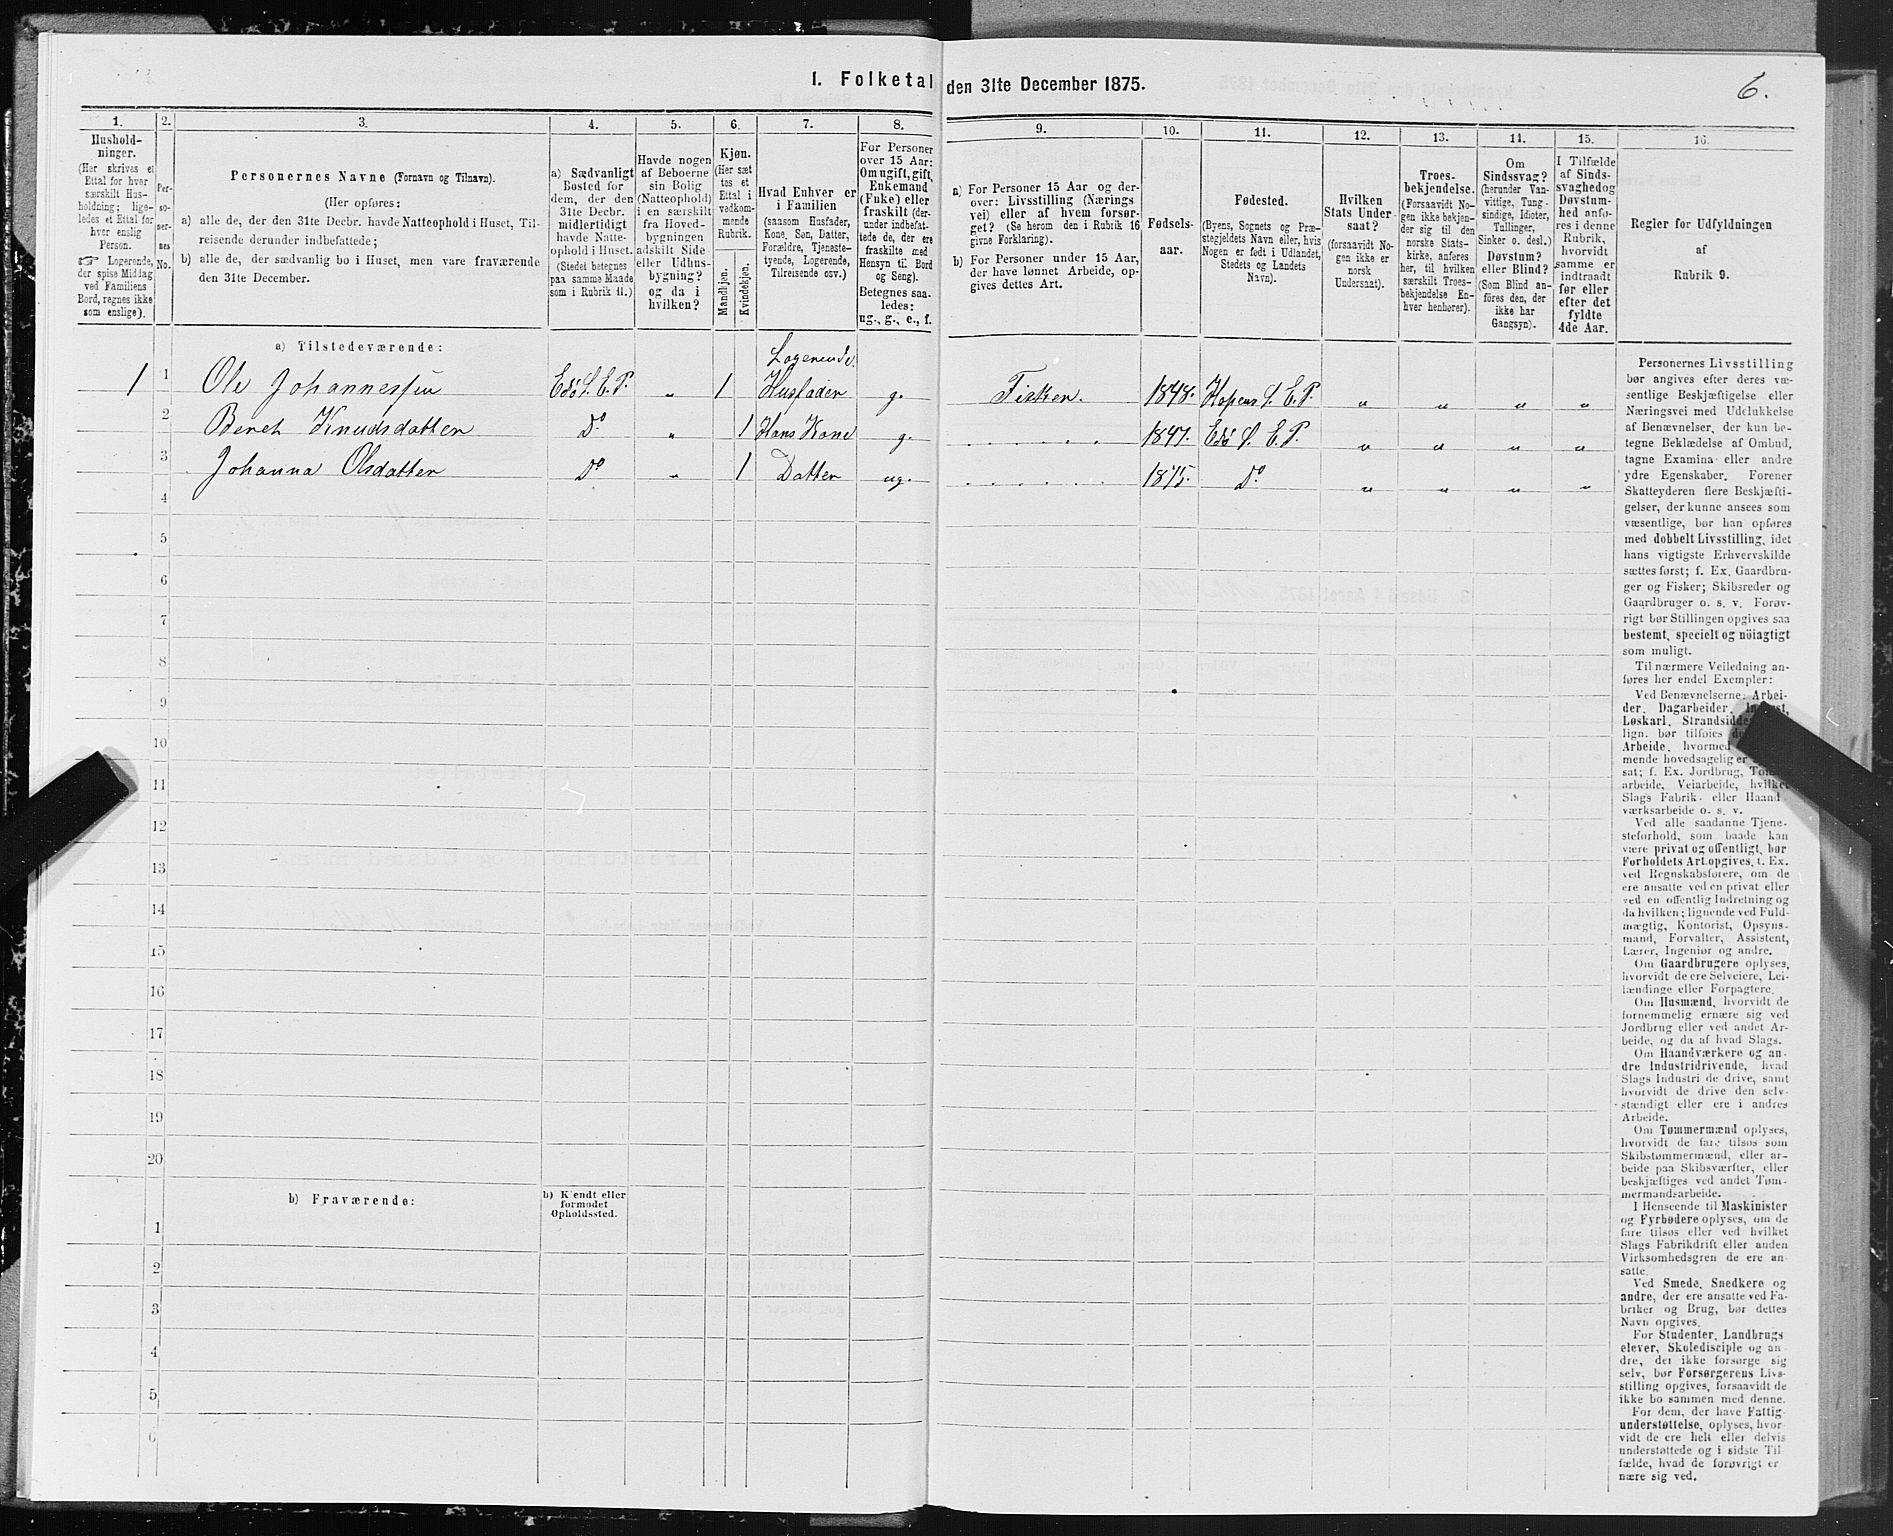 1. Folketal den 31te December 1875.
6.
1.
Hushold-
ninger.
(Her skrives et
Ettal for hver
særskilt Hus-
holdning; lige-
ledes et Ettal for
hver enslig
Person.
☞ Logerende,
der spise Middag
ved Familiens
Bord, regnes ikke
som enslige).
2.
Per-
so-
ner-
nes
No.
3.
Personernes Navne (Fornavn og Tilnavn).
(Her opføres:
a) alle de, der den 31te Decbr. havde Natteophold i Huset, Til-
reisende derunder indbefattede;
b) alle de, der sædvanlig bo i Huset, men vare fraværende
den 31te December.
4.
a) Sædvanligt
Bosted for
dem, der den
31te Decbr.
midlertidigt
havde Natte-
ophold i Huset.
(Stedet betegnes
paa samme Maade
som i Rubrik 11.)
5.
Havde nogen
af Beboerne
sin Bolig
(Natteophold)
i en særskilt
fra Hoved-
bygningen
adskilt Side
eller Udhus-
bygning?
og da i
hvilken?
6.
Kjøn.
(Her sæt-
tes et
Ettal i
vedkom-
mende
Rubrik.
Mandkjøn.
Kvindekjøn.
7.
Hvad Enhver er
i Familien
(saasom Husfader,
Kone, Søn, Datter,
Forældre, Tjeneste-
tyende, Logerende,
Tilreisende osv.)
8.
For Personer
over 15 Aar:
Om ugift, gift,
Enkemand
(Enke) eller
fraskilt (der-
under indbefat-
tede de, der ere
fraskilte med
Hensyn til Bord
og Seng).
Betegnes saa-
ledes:
ug., g., e., f.
9.
a) For Personer 15 Aar og der-
over: Livsstilling (Nærings
vei) eller af hvem forsør-
get? (Se herom den i Rubrik 16
givne Forklaring).
b) For Personer under 15 Aar,
der have lønnet Arbeide, op-
gives dettes Art.
10.
Fødsels-
aar.
11.
Fødested.
(Byens, Sognets og Præ-
stegjeldets Navn eller, hvis
Nogen er født i Udlandet,
Stedets og Landets
Navn).
12.
Hvilken
Stats Under-
saat?
(forsaavidt No-
gen ikke er
norsk
Undersaat).
13.
Troes-
bekjendelse.
(Forsaavidt No-
gen ikke bekjen-
der sig til den
norske Stats-
kirke, anføres
her, til hvilken
særskilt Troes-
bekjendelse En-
hver henhører).
14.
Om
Sindssvag?
(herunder Van-
vittige, Tung-
sindige, Idioter,
Tullinger,
Sinker o. desl.)
Døvstum?
eller Blind?
(Som Blind an-
føres den, der
ikke har
Gangsyn).
15.
I Tilfælde
af Sinds-
svaghed og
Døvstum-
hed anfø-
res i denne
Rubrik,
hvorvidt
samme er
indtraadt
før eller
efter det
fyldte
4de Aar.
16.
Regler for Udfyldningen
af
Rubrik 9.
a) Tilstedeværende:
Logerende.
1 1 Ole Johannessen Edö S. E. P. „ 1 Husfader g. Fisker. 1848. Hopens S. E. P. „ „ „ „
2 Beret Knudsdatter Do „ 1 Hans Kone g. ...... 1847. Edö S. E. P. „ „ „ „
3 Johanna Olsdatter Do „ 1 Datter ug. ...... 1875. Do „ „ „ „
4
5
6
7
8
9
10
11
12
13
14
15
16
17
18
19
20
b) Fraværende:
b) Kjendt eller
formodet
Opholdssted.
1
2
3
4
5
6
Personernes Livsstilling
bør angives efter deres væ-
sentlige Beskjæftigelse eller
Næringsvei med Udelukkelse
af Benævnelser, der kun be-
tegne Beklædelse af Ombud,
tagne Examina eller andre
ydre Egenskaber. Forener
Skatteyderen flere Beskjæfti-
gelser, der kunne ansees som
væsentlige, bør han opføres
med dobbelt Livsstilling, idet
hans vigtigste Erhvervskilde
sættes først; f. Ex. Gaardbru-
ger og Fisker; Skibsreder og
Gaardbruger o. s. v. Forøv-
rigt bør Stillingen opgives saa
bestemt, specielt og nöiagtigt
som muligt.
Til nærmere Veiledning an-
føres her endel Exempler:
Ved Benævnelserne: Arbei-
der, Dagarbeider,
Løskarl, Strandsidder
lign. bør tilføies
Arbeide, hvormed
mende hovedsagelig er
sat; f. Ex. Jordbrug,
arbeide, Veiarbeide, hvilket
Slags Fabrik- eller Haand-
værksarbeide o. s. v.
Ved alle saadanne Tjene-
steforhold, som baade kan
være privat og offentligt, bør
Forholdets Art opgives, f. Ex.
ved Regnskabsførere, om de
ere ansatte ved en privat eller
ved en offentlig Indretning og
da hvilken; lignende ved Fuld-
mægtig, Kontorist, Opsyns-
mand, Forvalter, Assistent,
Lærer, Ingeniør og andre.
Om Gaardbrugere oplyses,
hvorvidt de ere Selveiere, Lei-
lændinge eller Forpagtere.
Om Husmænd, hvorvidt de
fornemmelig ernære sig ved
Jordbrug eller ved andet Ar-
beide, og da af hvad Slags.
Om Haandværkere og an-
dre Industridrivende, hvad
Slags Industri de drive, samt
hvorvidt de drive den selv-
stændigt eller ere i andres
Arbeide.
Om Tømmermænd oplyses,
hvorvidt de fare tilsøs som
Skibstømmermænd, eller ar-
beide paa Skibsværfter, eller
beskjæftiges ved andet Tøm-
mermandsarbeide.
I Henseende til Maskinister
og Fyrbødere oplyses, om de
fare tilsøs eller ved hvilket
Slags Fabrikdrift eller anden
Virksomhedsgren de ere an-
satte.
Ved Smede, Snedkere og
andre, der ere ansatte ved Fa-
briker og Brug, bør dettes
Navn opgives.
For Studenter, Landbrugs
elever, Skoledisciple og an-
dre, der ikke forsørge sig
selv, bør Forsørgerens Livs-
stilling opgives, forsaavidt de
ikke bo sammen med denne.
For dem, der have Fattig-
understøttelse, oplyses, hvor-
vidt de ere helt eller delvis
understøttede og i sidste Til-
fælde, hvad de forøvrigt er
nære sig ved.